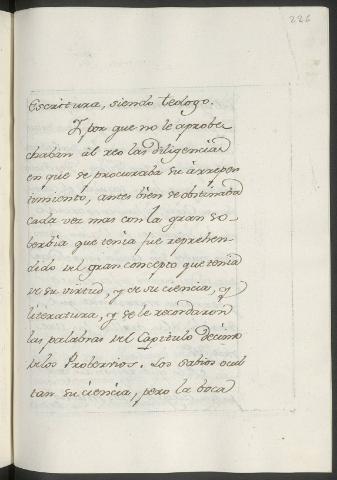 226
Escritura, siendo teologo.
Y por que no le aprobe
chaban al reo las diligencias
en que se procuraba su arrepen
timiento, antes bien se obstinaba
cada vez mas con la gran so-
berbia que tenia fue reprehen-
dido del gran concepto que tenia
de su virtud, y de su ciencia, y
literatura, y se le recordaron
las palabras del Capitulo decimo
delos Probervios. Los sabios ocul
tan su ciencia, pero la boca